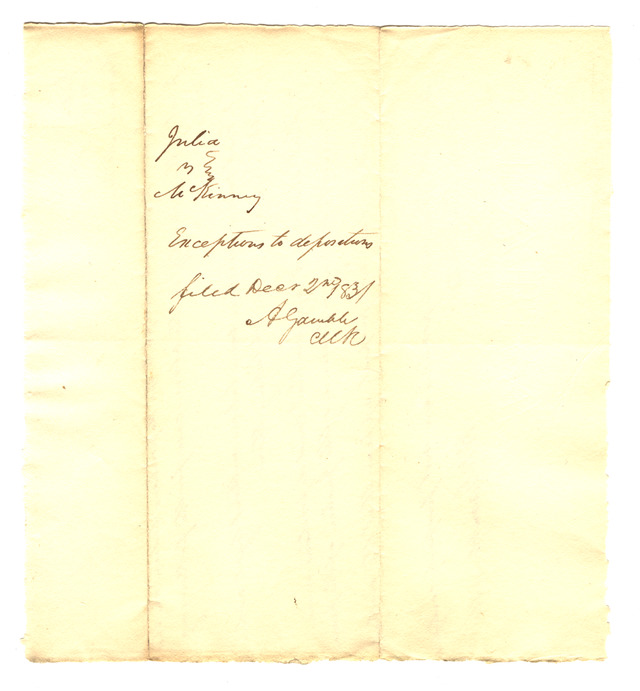 Julia
vs
McKinney
Exceptions to depositions
filed Decr 2nd 1831
A Gamble
Clk